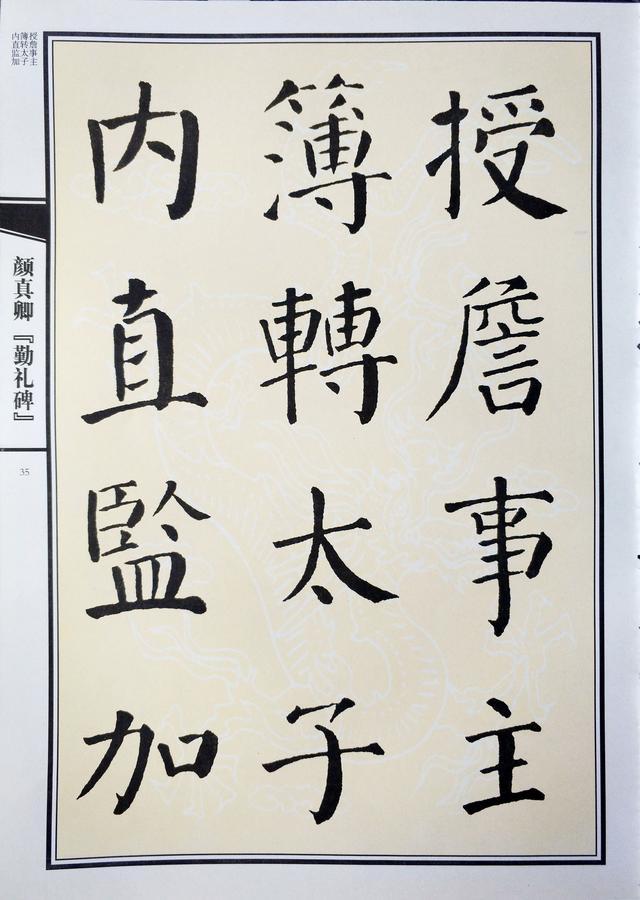 授詹事主
簿轉太子
内直監加
授詹事主
簿转太子
内直监加
颜真卿『勤礼碑』
35